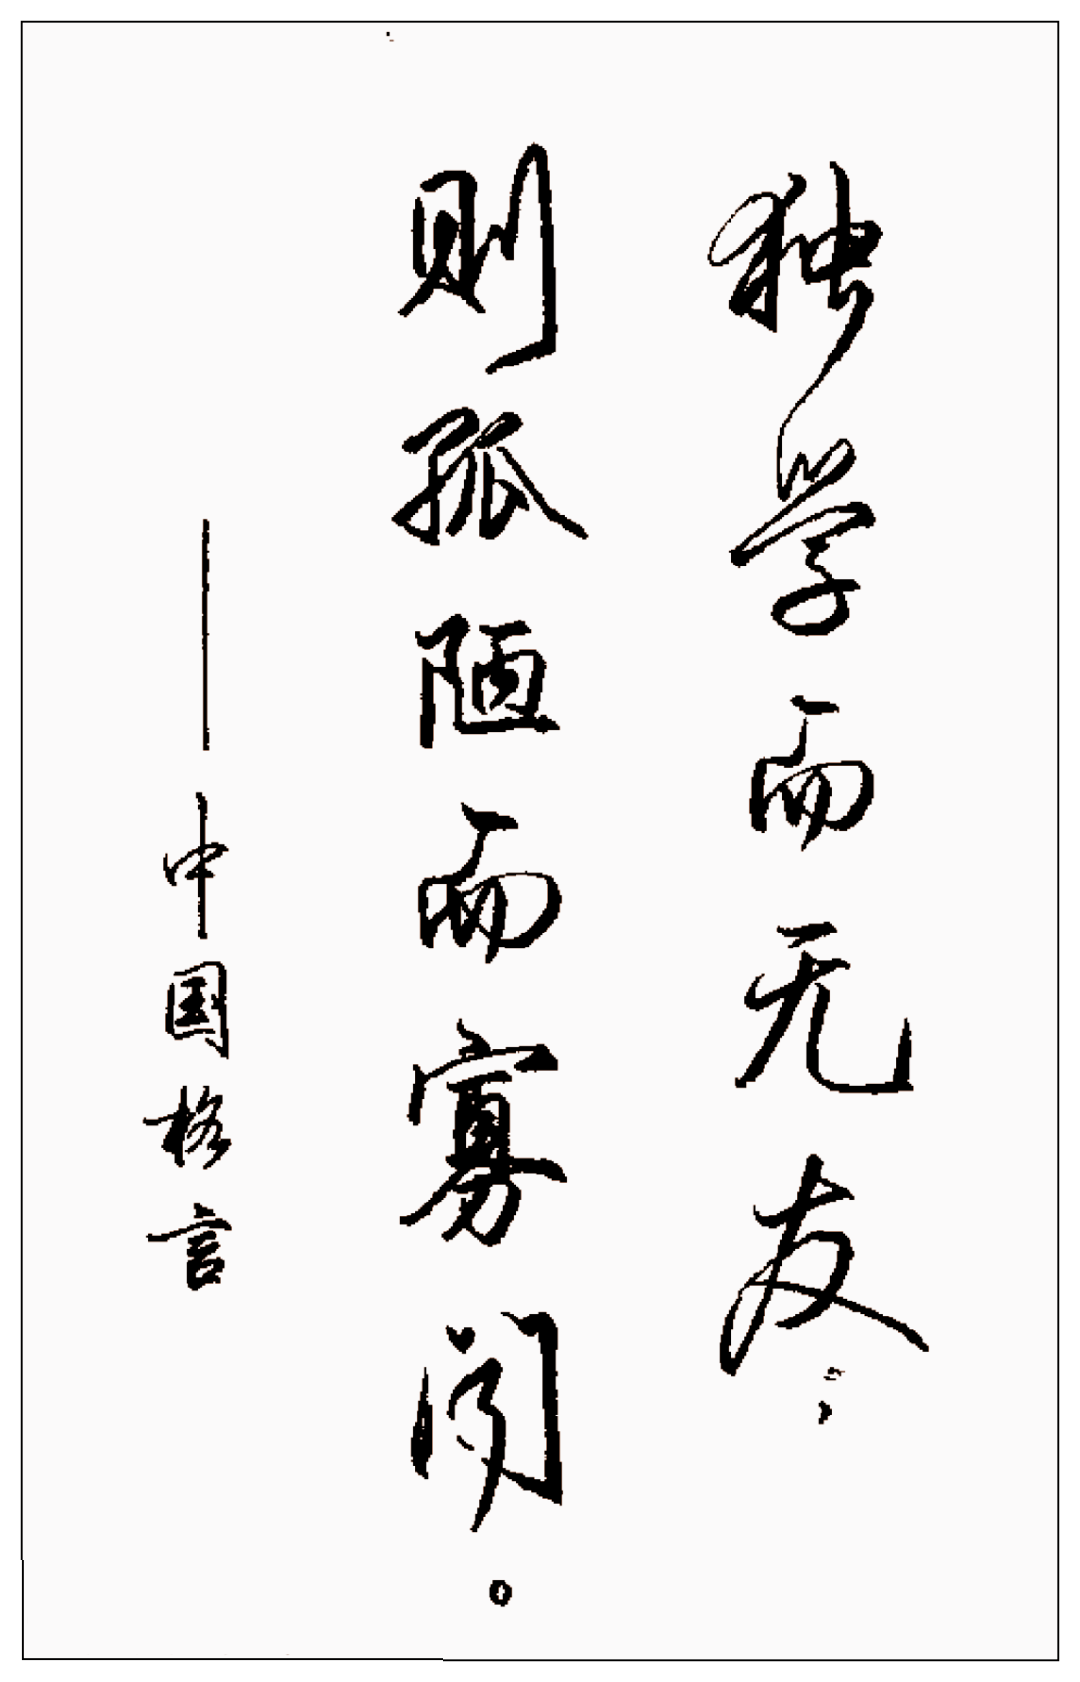 独学而无友，
则孤陋而寡闻。
——中国格言